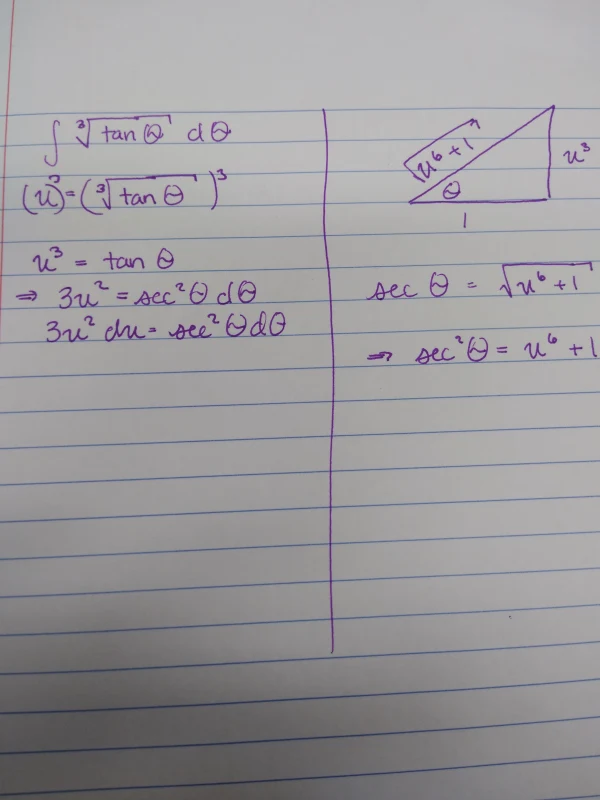 ∫ ∛(tan θ) dθ
(u)³ = (∛(tan θ))³
u³ = tan θ
⇒ 3u² = sec²θ dθ
3u² du = sec²θ dθ
√(u⁶ + 1)
u³
θ
1
sec θ = √(u⁶ + 1)
⇒ sec²θ = u⁶ + 1